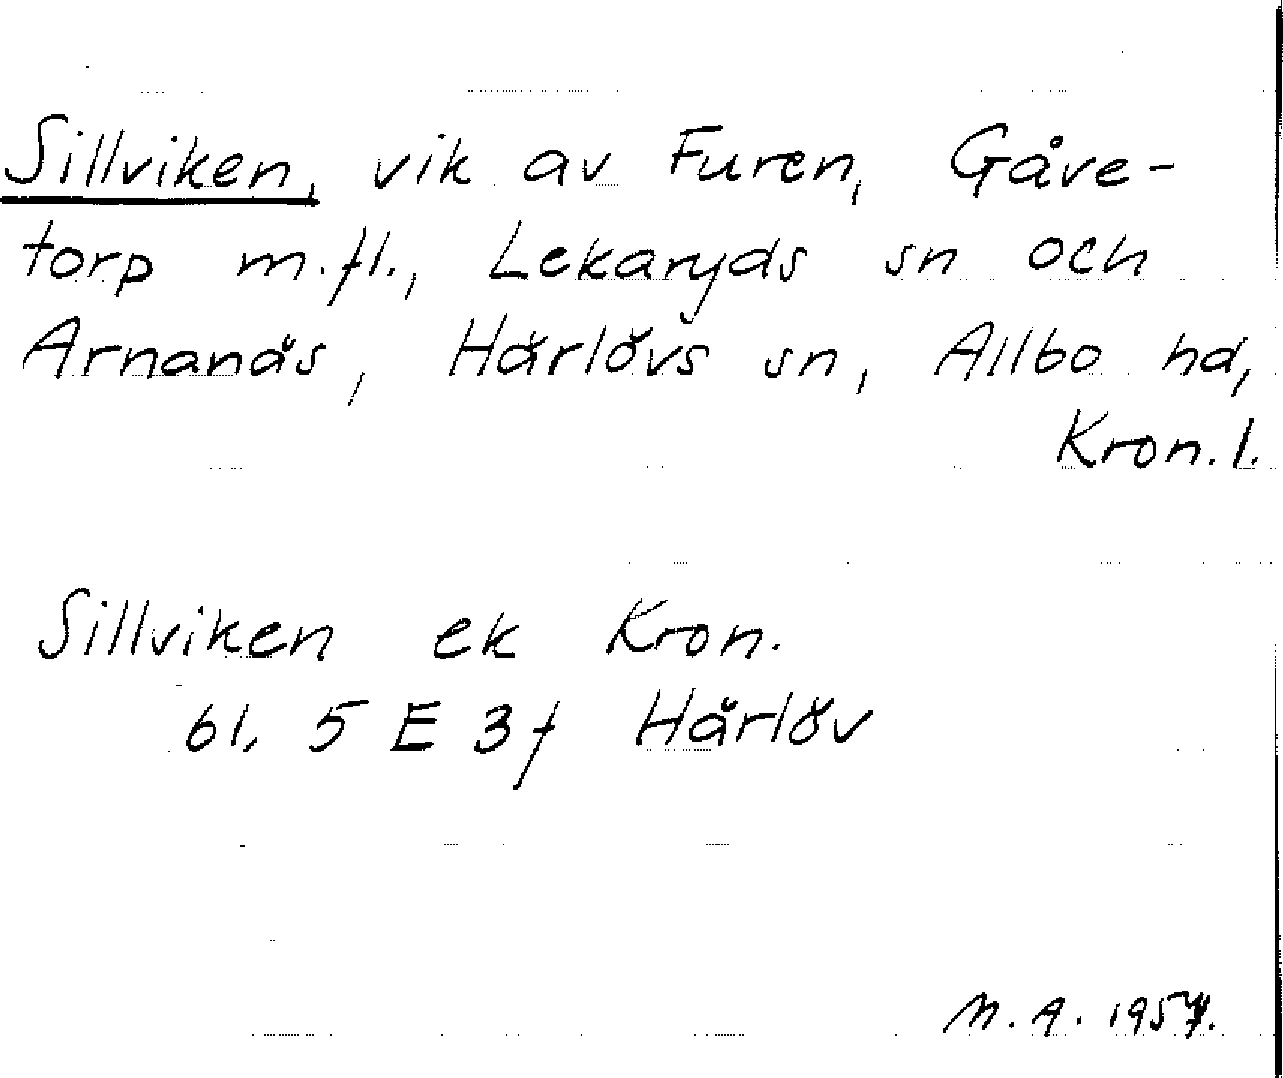 Sillviken, vik av Furen, Gåve-
torp m.fl., Lekaryds sn och
Arnanäs, Härlövs sn, Allbo hd,
Kron. l.
Sillviken ek Kron.
bl. 5 E 3f Härlöv
M. A. 1957.